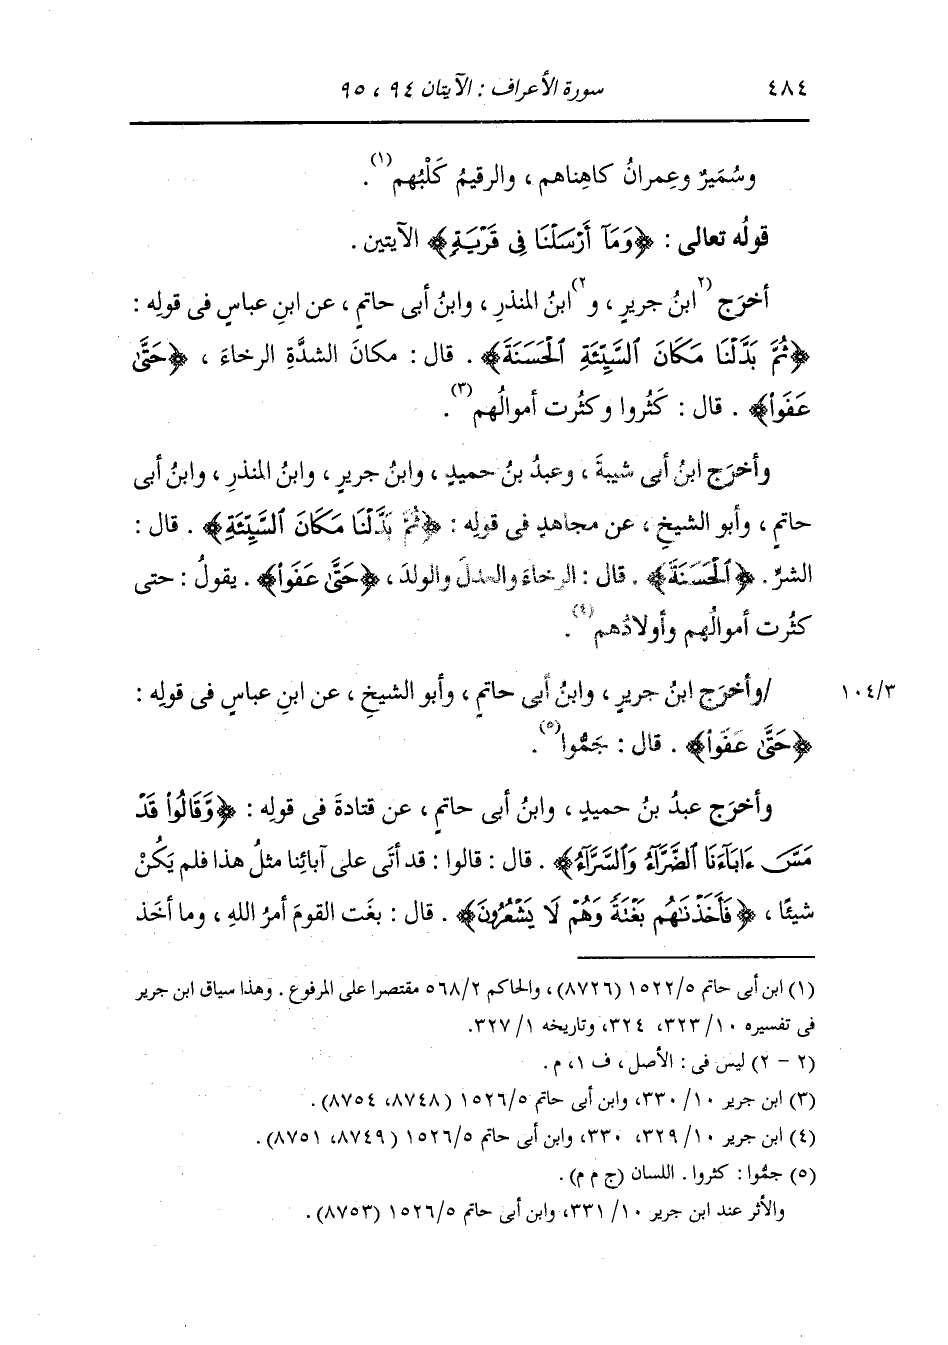 ٤٨٤ سورة الأعراف : الآيتان ٩٤ ، ٩٥
وسُمَيرٌ وعِمرانُ كاهِناهم ، والرقيمُ كَلْبُهم(١).
قولُه تعالى : ﴿وَمَآ أَرْسَلْنَا فِى قَرْيَةٍ﴾ الآيتين .
أخرَج (٢)ابنُ جريرٍ ، و(٢)ابنُ المنذرِ ، وابنُ أبى حاتمٍ ، عن ابنِ عباسٍ فى قولِه :
﴿ثُمَّ بَدَّلْنَا مَكَانَ ٱلسَّيِّئَةِ ٱلْحَسَنَةَ﴾ . قال : مكانَ الشدَّةِ الرخاءَ ، ﴿حَتَّىٰ
عَفَوا۟﴾ . قال : كَثُروا وكثُرت أموالُهم(٣).
وأخرَج ابنُ أبى شيبةَ ، وعبدُ بنُ حميدٍ ، وابنُ جريرٍ ، وابنُ المنذرِ ، وابنُ أبى
حاتمٍ ، وأبو الشيخِ ، عن مجاهدٍ فى قولِه : ﴿ثُمَّ بَدَّلْنَا مَكَانَ ٱلسَّيِّئَةِ﴾ . قال :
الشرِّ . ﴿ٱلْحَسَنَةَ﴾ . قال : الرخاءَ والعدلَ والولدَ ، ﴿حَتَّىٰ عَفَوا۟﴾ . يقولُ : حتى
كثُرت أموالُهم وأولادُهم(٤).
١٠٤/٣ /وأخرَج ابنُ جريرٍ ، وابنُ أبى حاتمٍ ، وأبو الشيخِ ، عن ابنِ عباسٍ فى قولِه :
﴿حَتَّىٰ عَفَوا۟﴾ . قال : جَمُّوا(٥).
وأخرَج عبدُ بنُ حميدٍ ، وابنُ أبى حاتمٍ ، عن قتادةَ فى قولِه : ﴿وَّقَالُوا۟ قَدْ
مَسَّ ءَابَآءَنَا ٱلضَّرَّآءُ وَٱلسَّرَّآءُ﴾ . قال : قالوا : قد أتَى على آبائِنا مثلُ هذا فلم يَكُنْ
شيئًا ، ﴿فَأَخَذْنَـٰهُم بَغْتَةً وَهُمْ لَا يَشْعُرُونَ﴾ . قال : بغَت القومَ أمرُ اللهِ ، وما أخَذ
(١) ابن أبى حاتم ١٥٢٢/٥ (٨٧٢٦) ، والحاكم ٥٦٨/٢ مقتصرا على المرفوع . وهذا سياق ابن جرير
فى تفسيره ١٠/ ٣٢٣، ٣٢٤، وتاريخه ١/ ٣٢٧.
(٢ - ٢) ليس فى : الأصل ، ف ١، م .
(٣) ابن جرير ١٠/ ٣٣٠، وابن أبى حاتم ١٥٢٦/٥ ( ٨٧٤٨، ٨٧٥٤) .
(٤) ابن جرير ١٠/ ٣٢٩، ٣٣٠، وابن أبى حاتم ١٥٢٦/٥ ( ٨٧٤٩، ٨٧٥١) .
(٥) جمُّوا : كثروا . اللسان (ج م م) .
والأثر عند ابن جرير ١٠/ ٣٣١، وابن أبى حاتم ١٥٢٦/٥ (٨٧٥٣) .